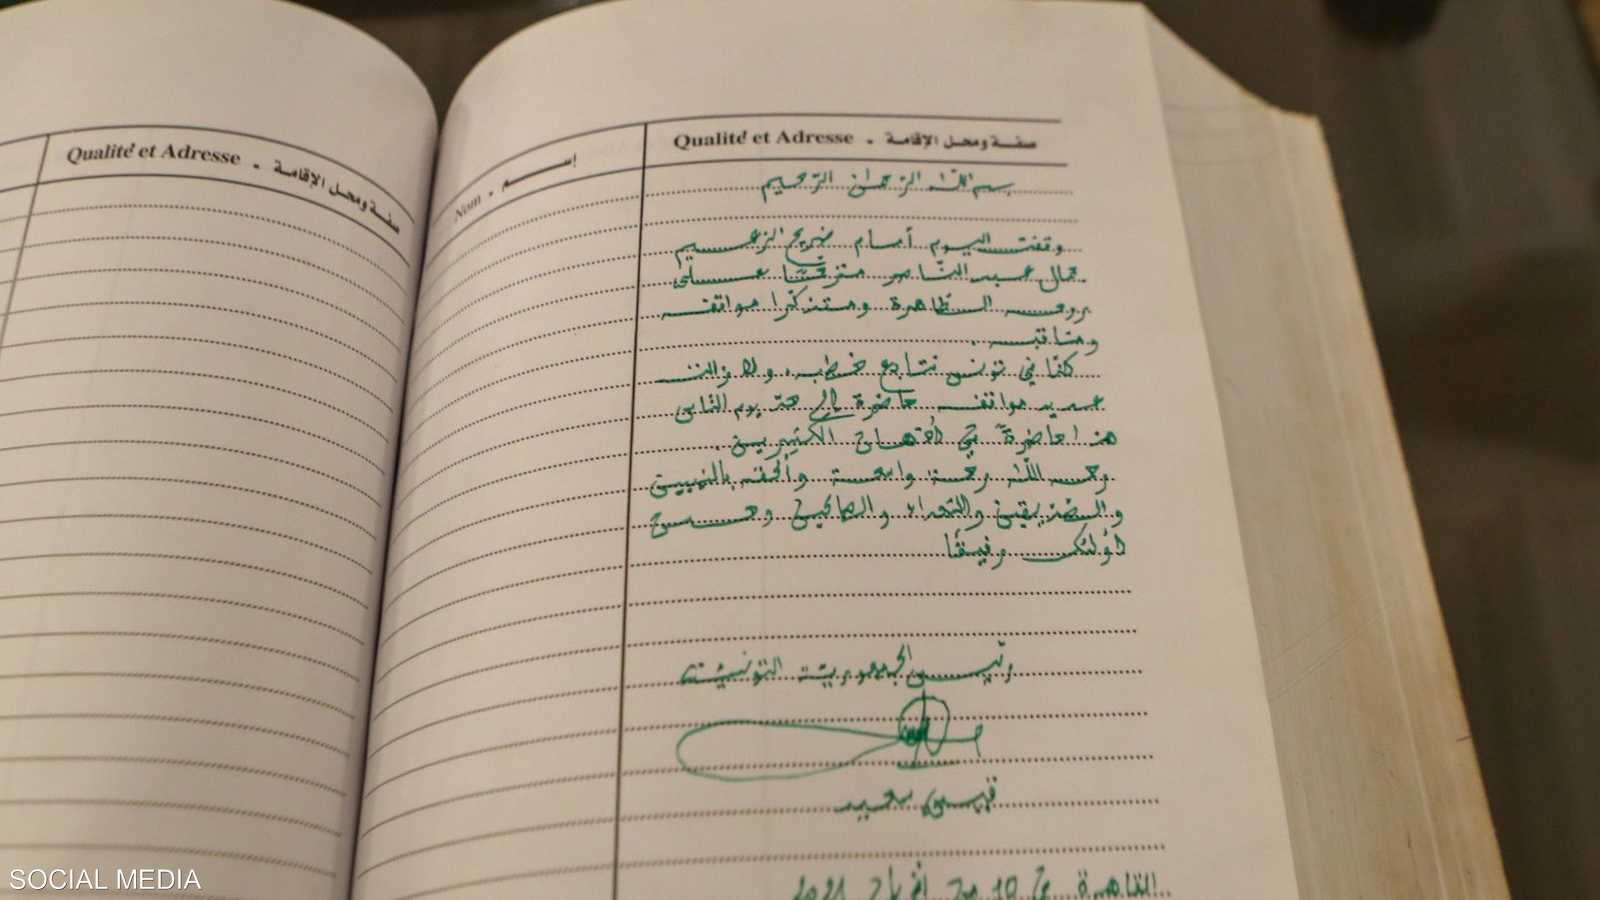 Qualité et Adresse - صفة ومحل الإقامة
Nom - إســـم
Qualité et Adresse - صفة ومحل الإقامة
بسم الله الرحمان الرحيم
وقفت اليوم أمام ضريح الزعيم
جمال عبد الناصر مترحمًا على
روحه الطاهرة ومتذكرا مواقفه
ومناقبه.
كنّا في تونس نتابع خطبه، ولا زالت
عديد مواقفه حاضرة إلى حد يوم الناس
هذا حاضرة في أذهان الكثيرين.
رحمه الله رحمة واسعة وألحقه بالنبيين
والصّديقين والشهداء والصالحين وحسن
أولئك رفيقًا
رئيس الجمهورية التونسيّة
قيس سعيد
القاهرة في 10 من أفريل 2021
SOCIAL MEDIA